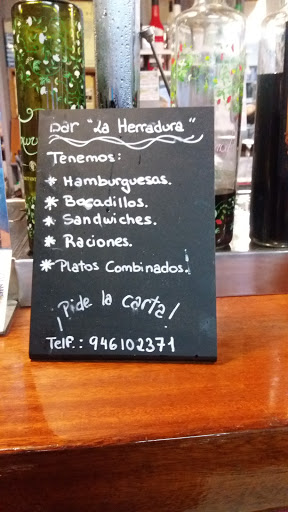 Bar "La Herradura"
Tenemos:
* Hamburguesas.
* Bocadillos.
* Sandwiches.
* Raciones.
* Platos Combinados.
¡Pide la carta!
Telf.: 946102371